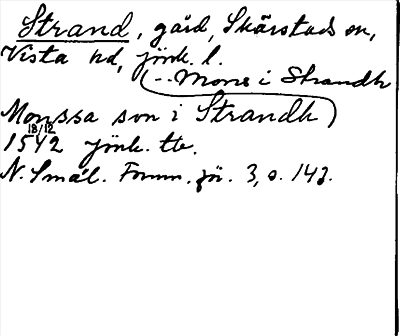 Strand, gård, Skärstads sn,
Vista hd, jönk. l.
(-- Mons i Strandh
Monssa son i Strandh)
18/12
1542 jönk. tb.
N. Smål. Fornm. för. 3, s. 143.